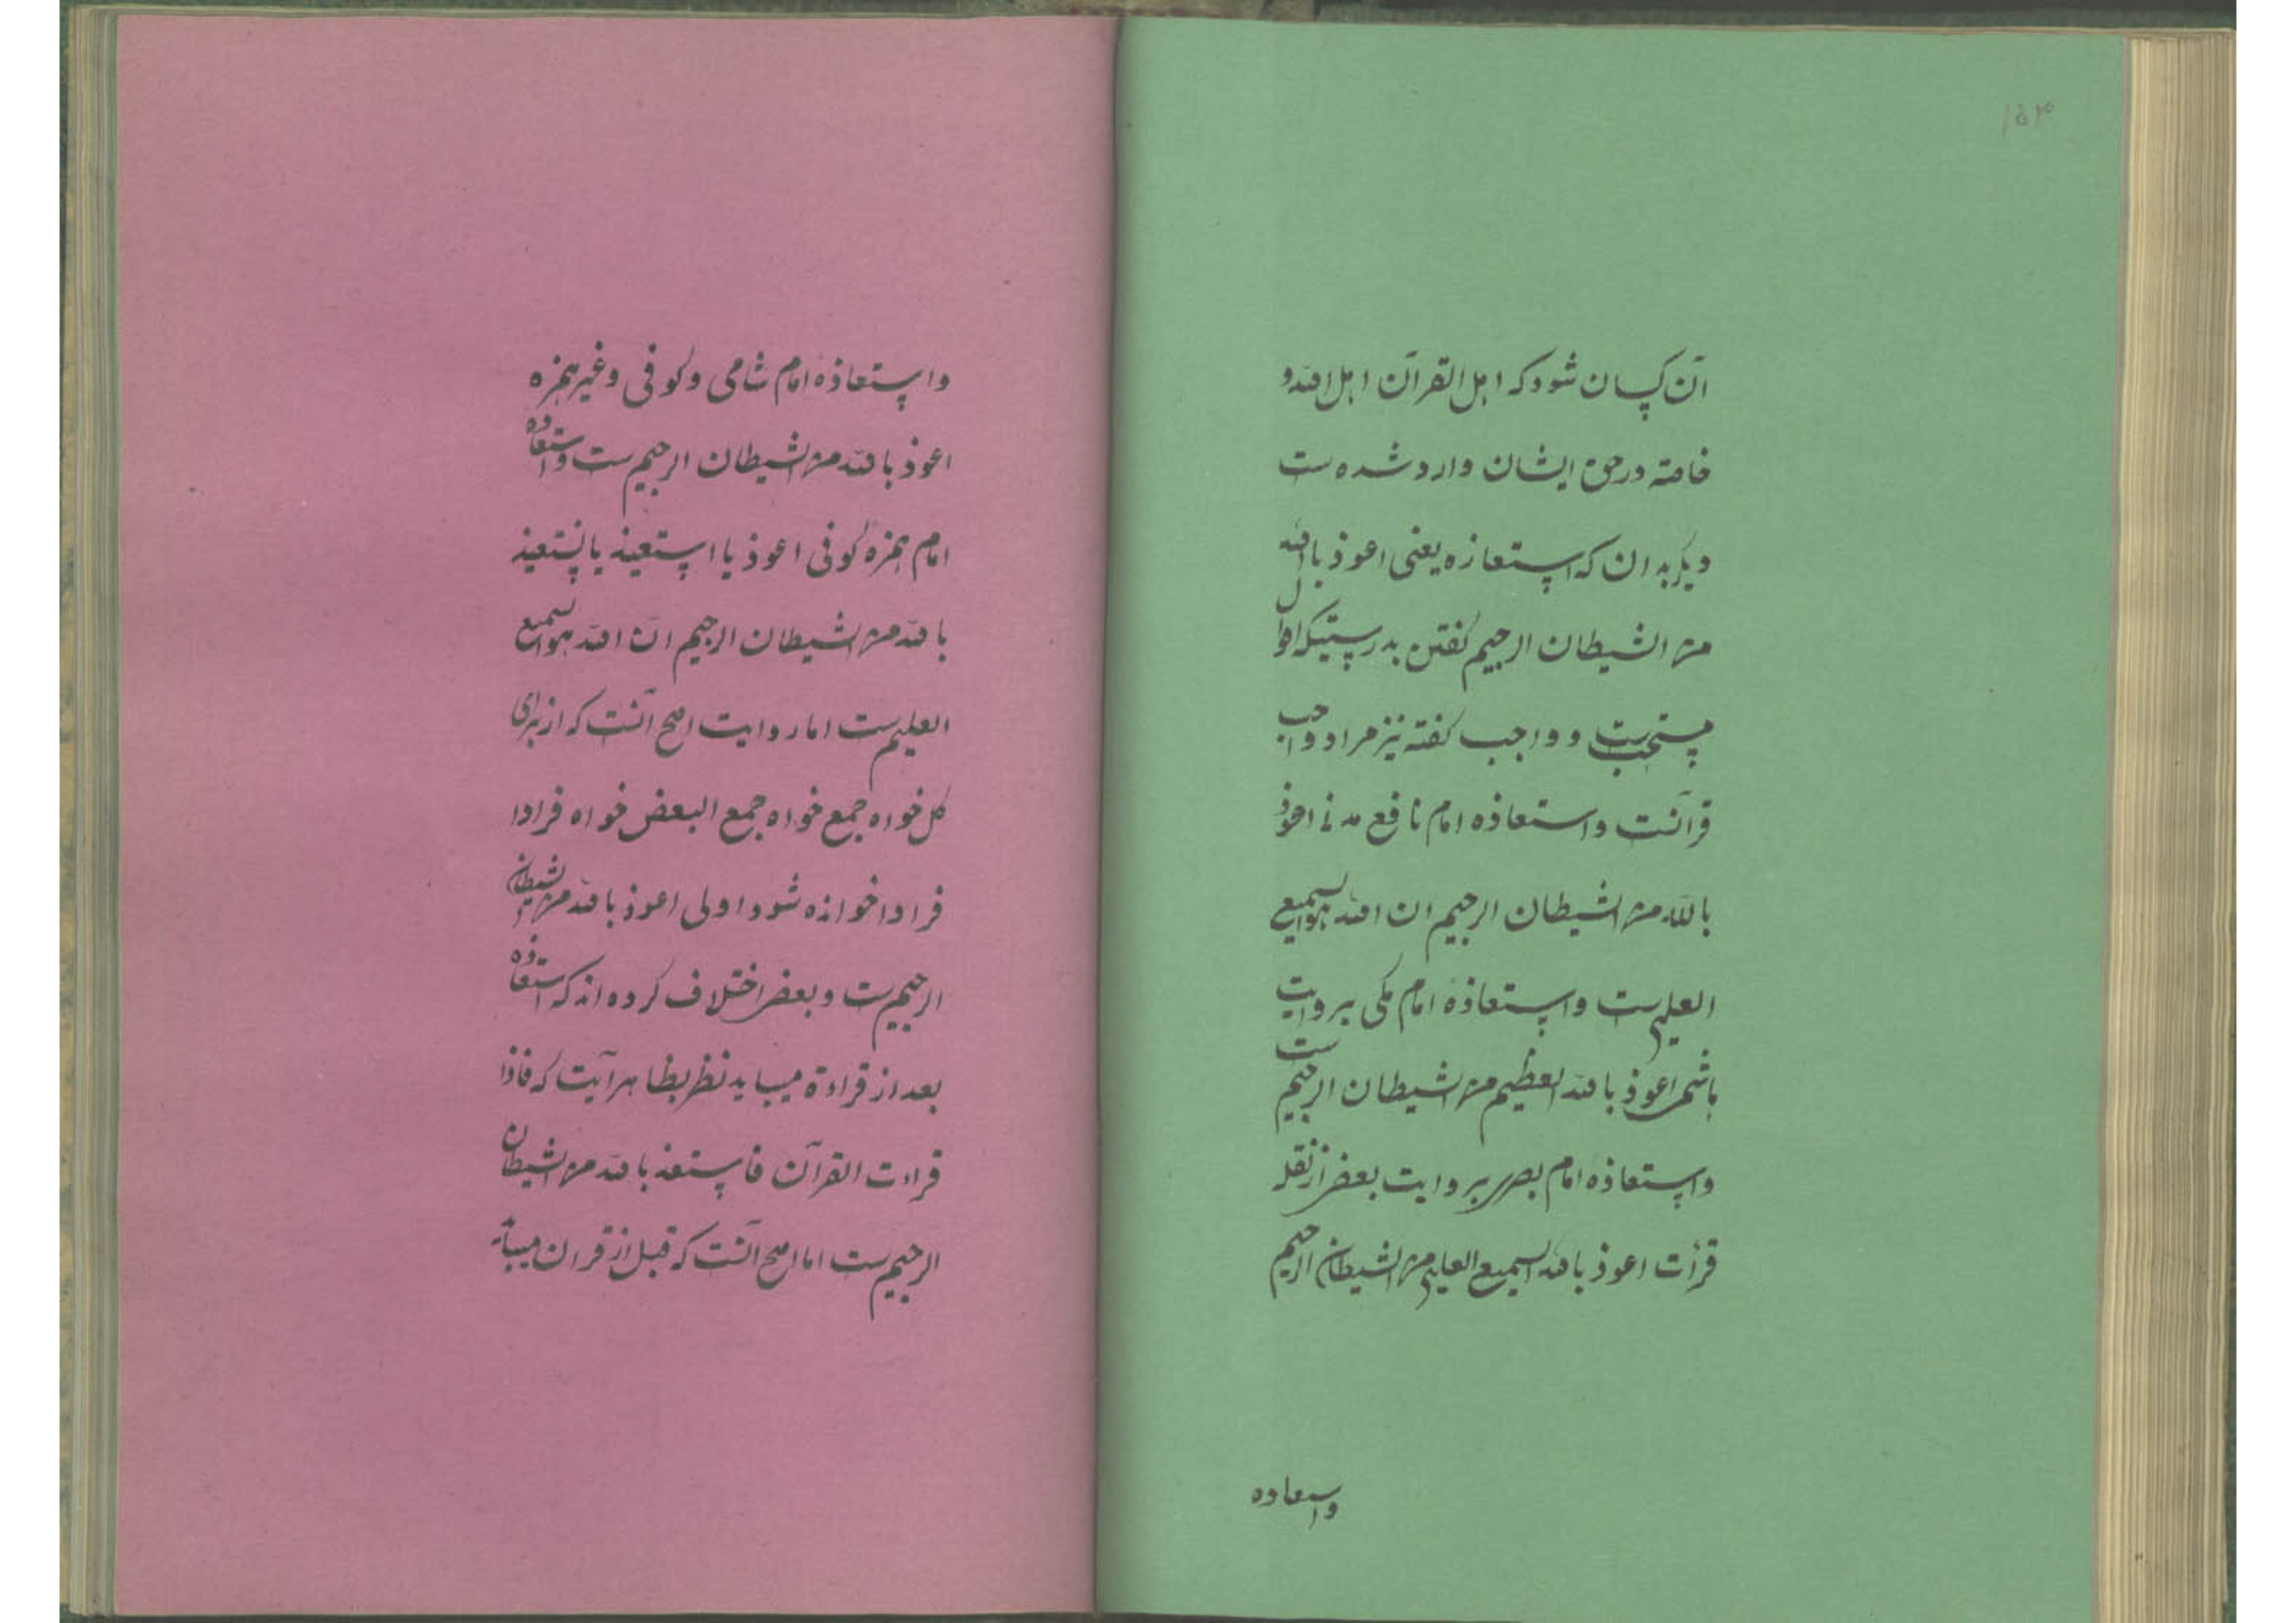 ۱۵۳
آن کسان شود که اهل القرآن اهل الله و
خاصة در حق ایشان وارد شده ست
دیگر بدان که استعازه یعنی اعوذ بالله
من الشیطان الرجیم گفتن بدرستیکه اقوال
مستحب ست و واجب گفته نیز مراد واجب
قرآنست واستعاذه امام نافع مدنی اعوذ
بالله من الشیطان الرجیم ان الله هو السمیع
العلیم ست واستعاذهٔ امام مکی بروایت
باشمی اعوذ بالله العظیم من الشیطان الرجیم ست
واستعاذه امام بصری بروایت بعض از نقله
قرأت اعوذ بالله السمیع العلیم من الشیطان الرجیم
واستعاده
واستعاذهٔ امام شامی وکوفی وغیر همزه
اعوذ بالله من الشیطان الرجیم ست واستعاذه
امام همزه کوفی اعوذ یا استعیذ یا نستعیذ
بالله من الشیطان الرجیم انّ الله هو السمیع
العلیم ست اما روایت اصح آنست که از برای
کل خواه جمع خواه جمع البعض خواه فرادا
فرادا خوانده شود اولی اعوذ بالله من الشیطان
الرجیم ست و بعض اختلاف کرده اند که استعاذه
بعد از قراءة میباید نظر بظاهر آیت که فاذا
قراءت القرآن فاستعذ بالله من الشیطان
الرجیم ست اما اصح آنست که قبل از قران میباید